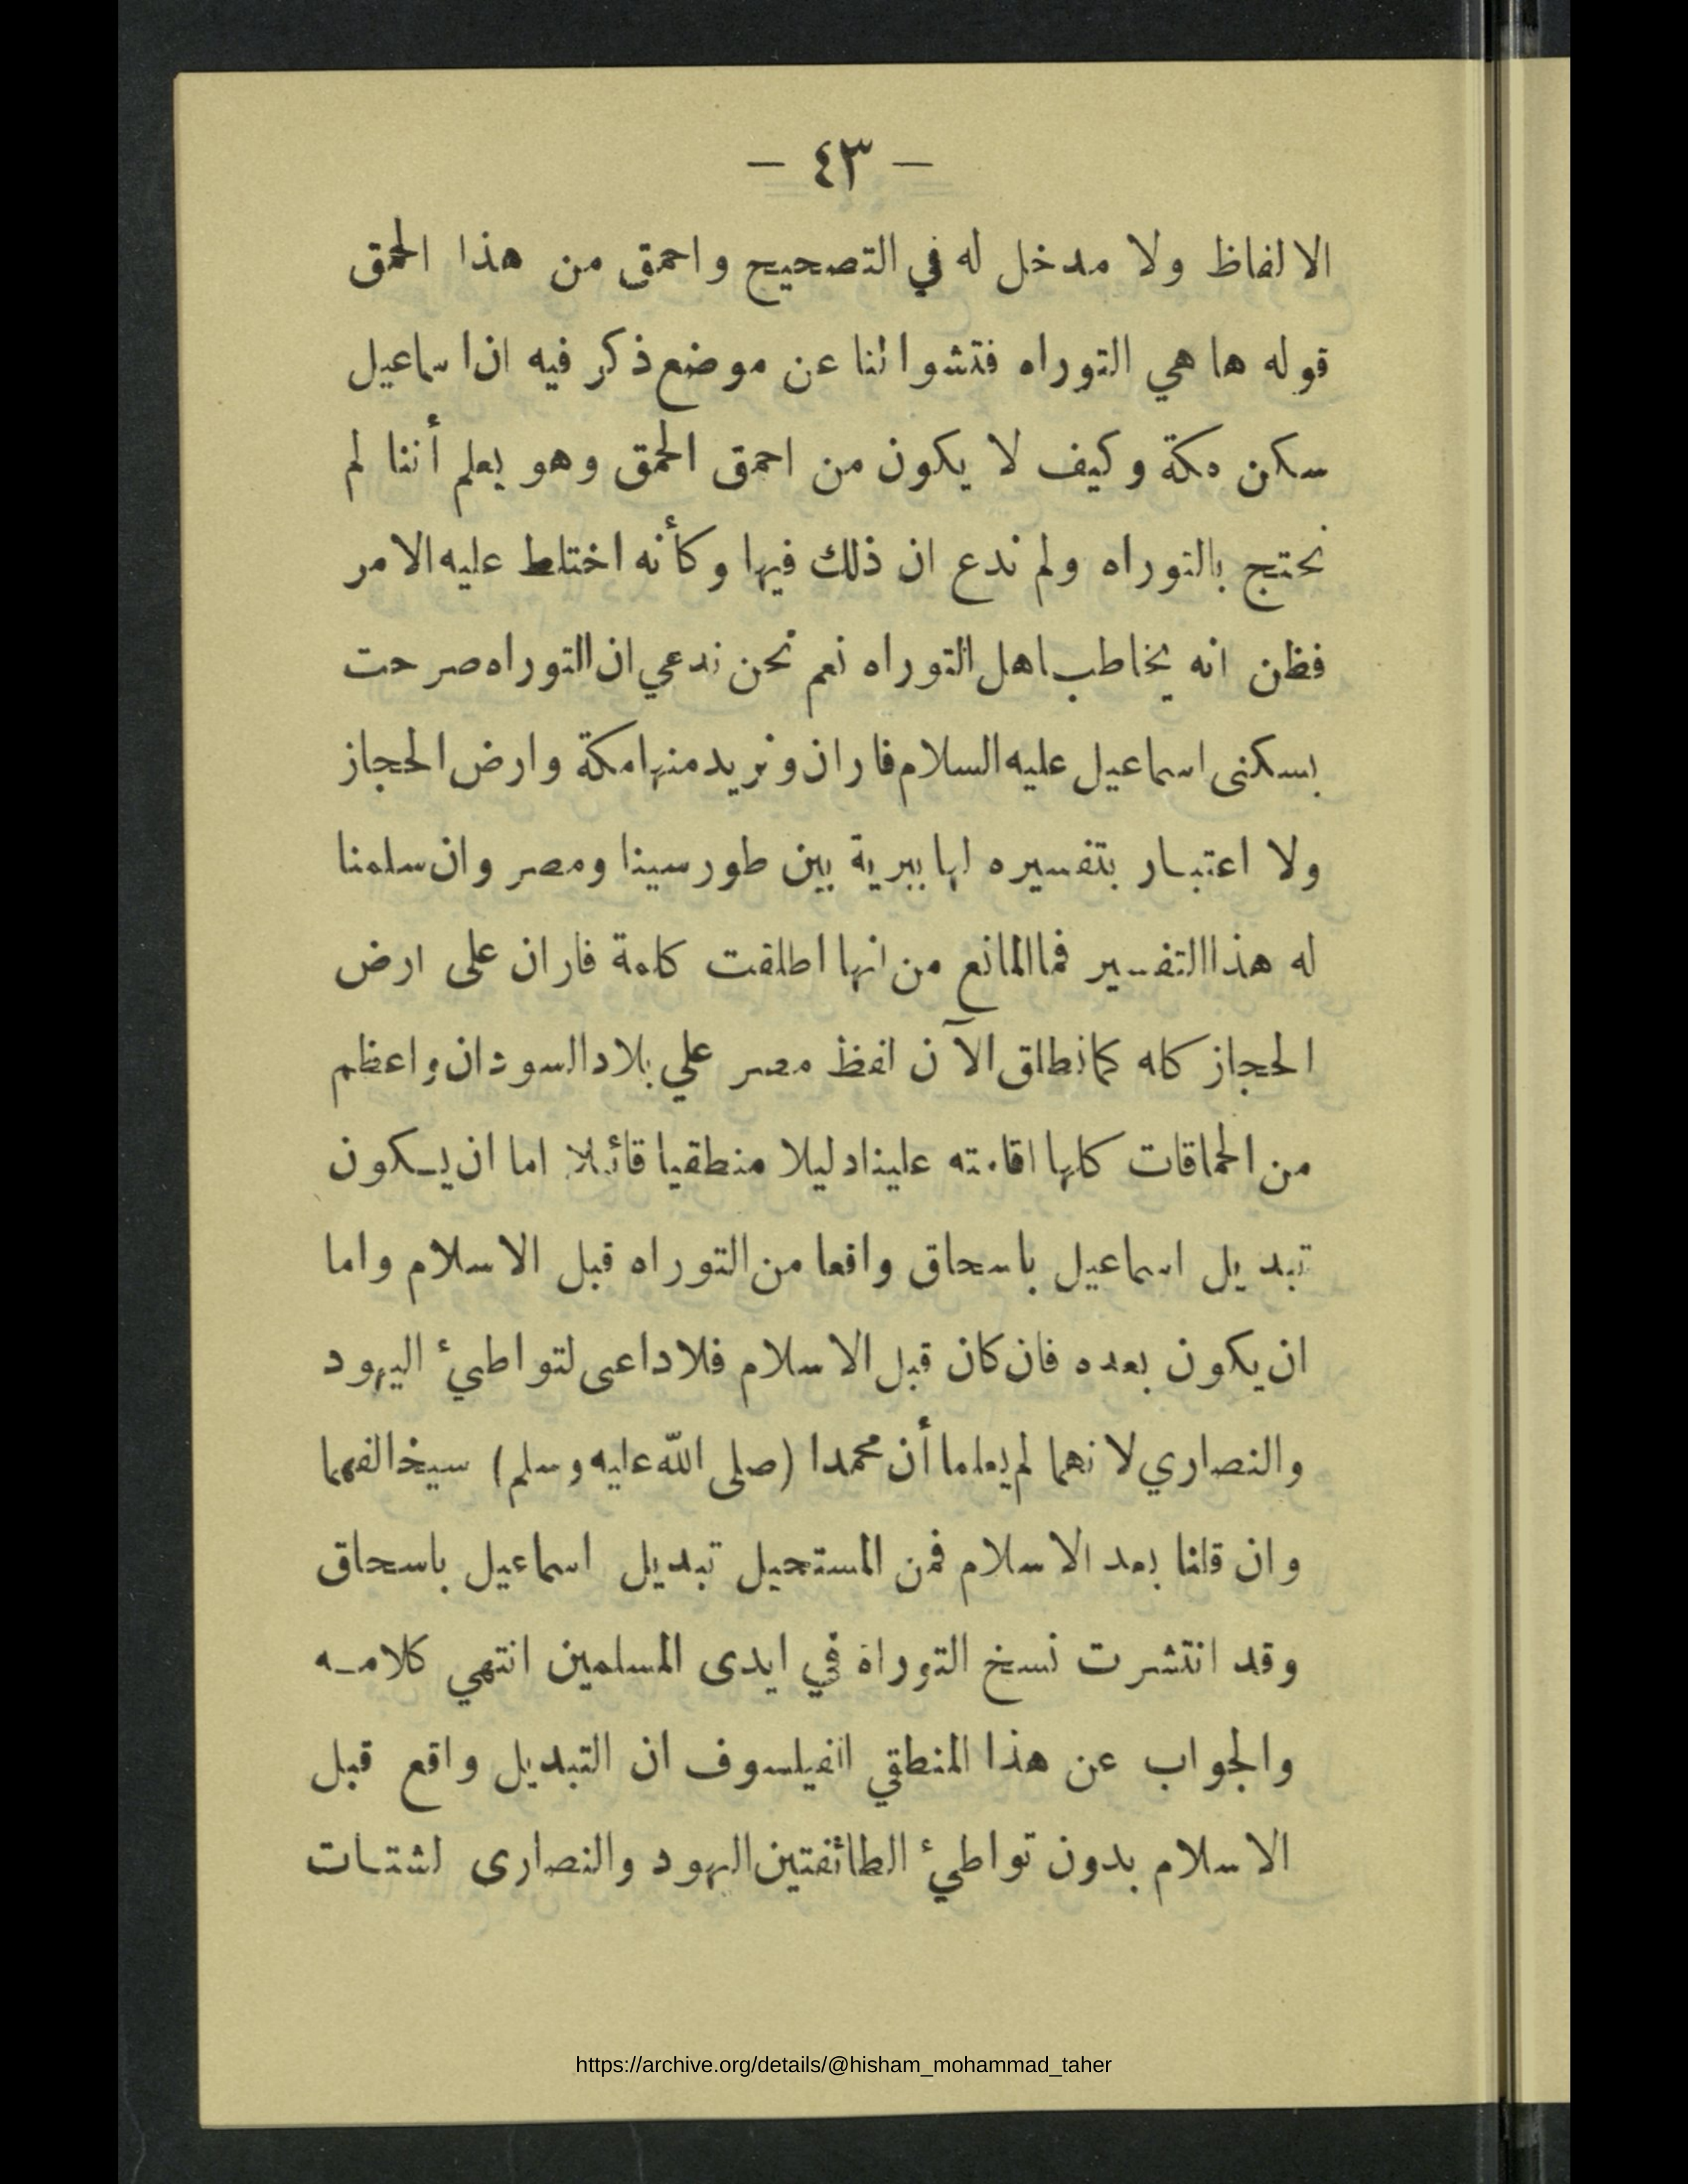 — ٤٣ —
الالفاظ ولا مدخل له في التصحيح واحمق من هذا الحمق
قوله ها هي التوراه فتشوا لنا عن موضع ذكر فيه ان اسماعيل
سكن مكة وكيف لا يكون من احمق الحمق وهو يعلم أننا لم
نحتج بالتوراه ولم ندع ان ذلك فيها وكأنه اختلط عليه الامر
فظن انه يخاطب اهل التوراه نعم نحن ندعي ان التوراه صرحت
بسكنى اسماعيل عليه السلام فاران ونريد منها مكة وارض الحجاز
ولا اعتبار بتفسيره لها ببرية بين طور سينا ومصر وان سلمنا
له هذا التفسير فما المانع من انها اطلقت كلمة فاران على ارض
الحجاز كله كما نطلق الآن لفظ مصر علي بلاد السودان واعظم
من الحماقات كلها اقامته علينا دليلا منطقيا قائلا اما ان يكون
تبديل اسماعيل باسحاق واقعا من التوراه قبل الاسلام واما
ان يكون بعده فان كان قبل الاسلام فلا داعى لتواطيء اليهود
والنصاري لانهما لم يعلما أن محمدا (صلى الله عليه وسلم) سيخالفهما
وان قلنا بعد الاسلام فمن المستحيل تبديل اسماعيل باسحاق
وقد انتشرت نسخ التوراة في ايدى المسلمين انتهي كلامه
والجواب عن هذا المنطقي الفيلسوف ان التبديل واقع قبل
الاسلام بدون تواطيء الطائفتين اليهود والنصارى لشتات
https://archive.org/details/@hisham_mohammad_taher